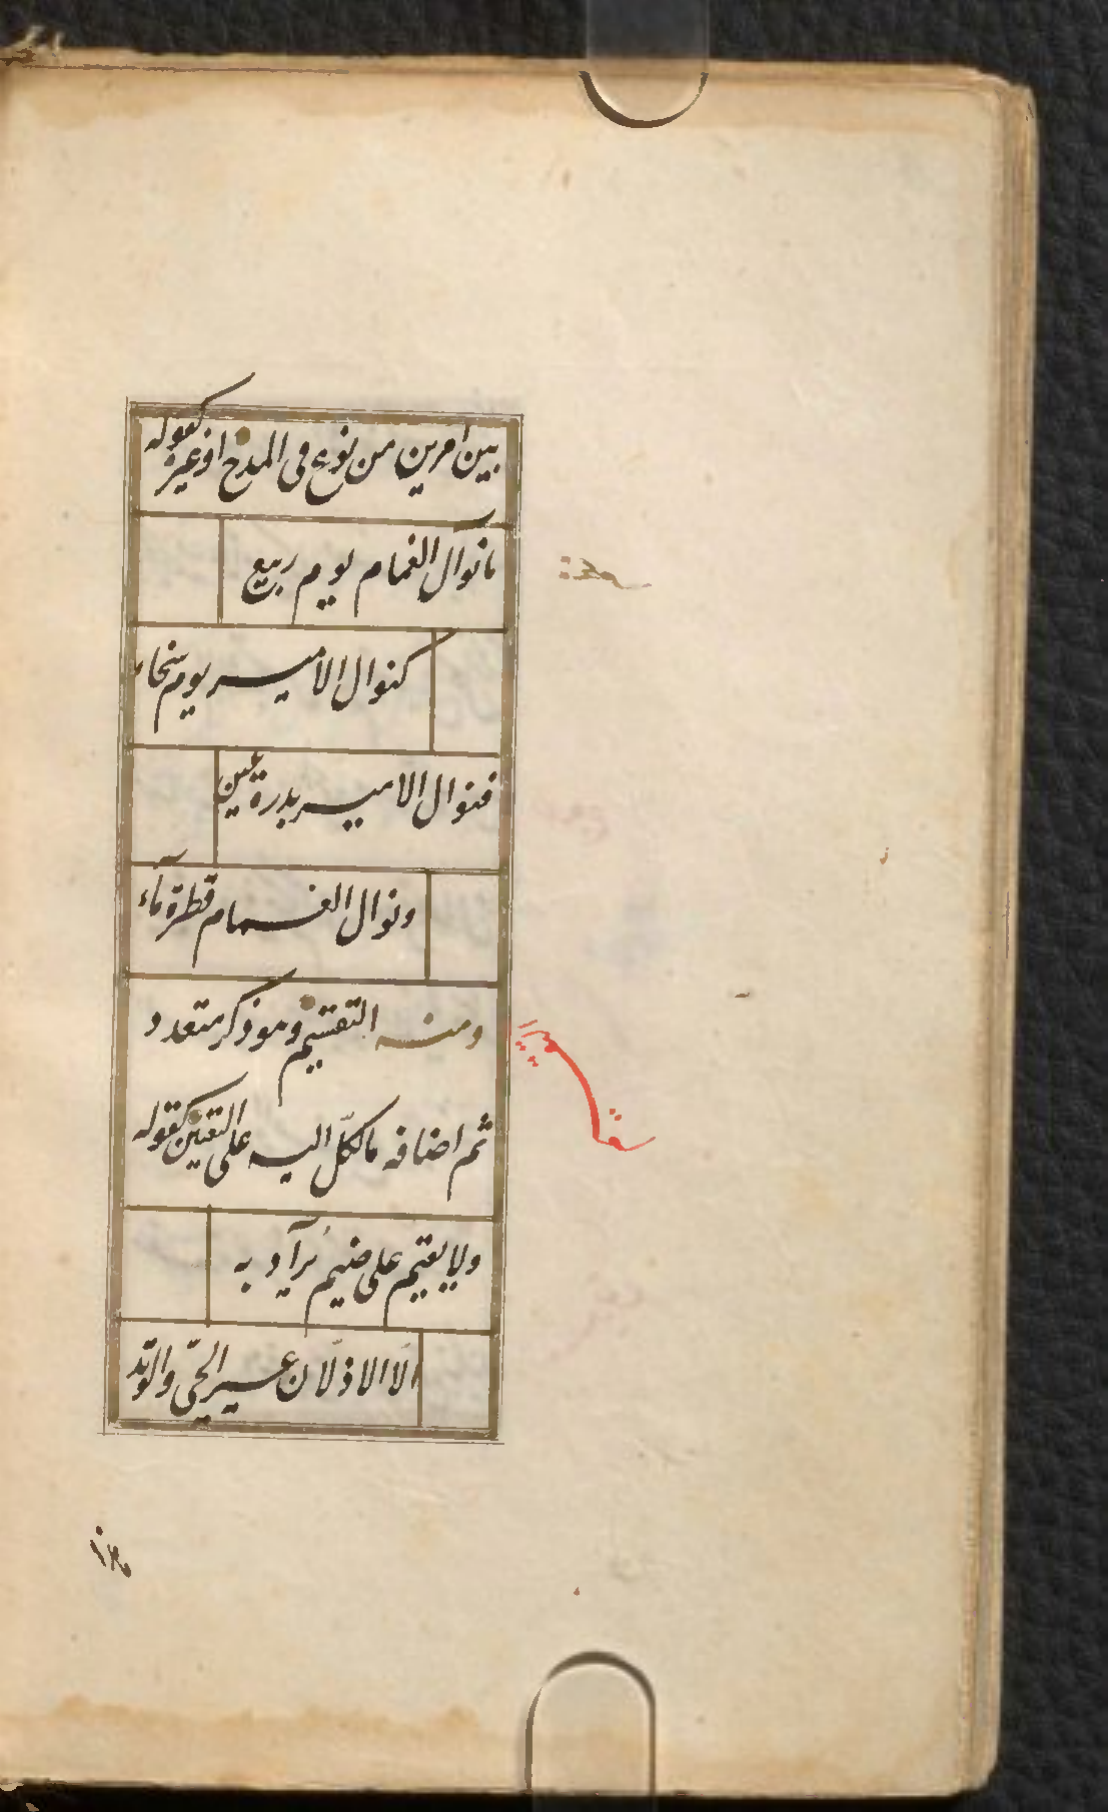 بين امرين من نوع فى المدح او غيره كقوله
ما نوال الغمام يوم ربيع
كنوال الامير يوم سخاء
فنوال الامير بدرة عين
ونوال الغمام قطرة ماء
ومنه التقسيم وهو ذكر متعدد
ثم اضافه ما لكلّ اليه على التعيين كقوله
ولا يقيم على ضيم يُراد به
الّا الاذلّان عير الحىّ والوتد